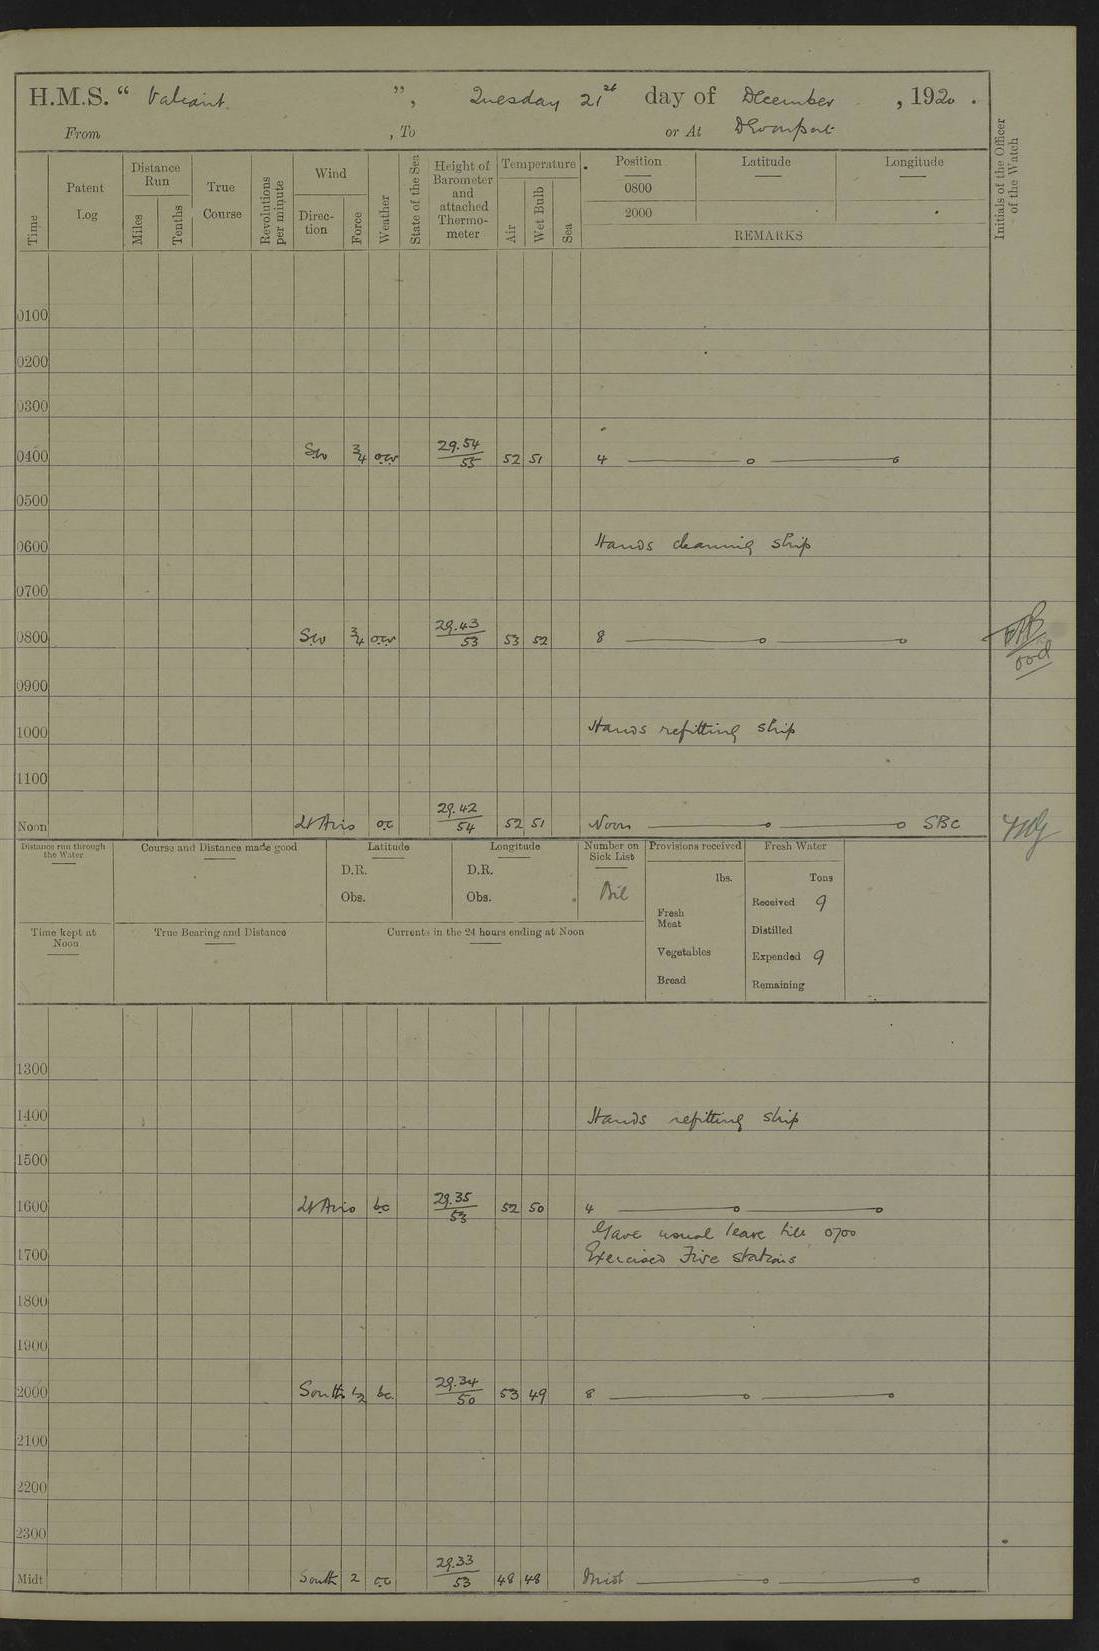 H.M.S. “ Valiant ”, Tuesday 21st day of December , 1920 .
From , To or At Devonport
Time
Patent Log
Distance Run
Miles
Tenths
True Course
Revolutions per minute
Wind
Direc-tion
Force
Weather
State of the Sea
Height of Barometer and attached Thermo-meter
Temperature
Air
Wet Bulb
Sea
Position Latitude Longitude
0800
2000
REMARKS
Initials of the Officer of the Watch
0100
0200
0300
0400 SW 3/4 29.54/55 52 51 4
0500
0600 Hands cleaning ship
0700
0800 SW 3/4 29.43/53 53 52 8
0900
1000 Hands refitting ship
1100
Noon Lt Airs oc 29.42/54 52 51 Noon SBC
Distance run through the Water
Course and Distance made good
Latitude
D.R.
Obs.
Longitude
D.R.
Obs.
Number on Sick List
Provisions received
lbs.
Fresh Meat
Vegetables
Bread
Fresh Water
Tons
Received 9
Distilled
Expended 9
Remaining
Time kept at Noon
True Bearing and Distance
Currents in the 24 hours ending at Noon
1300
1400 Hands refitting ship
1500
1600 Lt Airs bc 29.35/53 52 50 4
Gave usual leave till 0700
1700 Exercised Fire stations
1800
1900
2000 South 1/2 bc. 29.34/50 53 49 8
2100
2200
2300
Midt South 2 oc 29.33/53 48 48 Midt